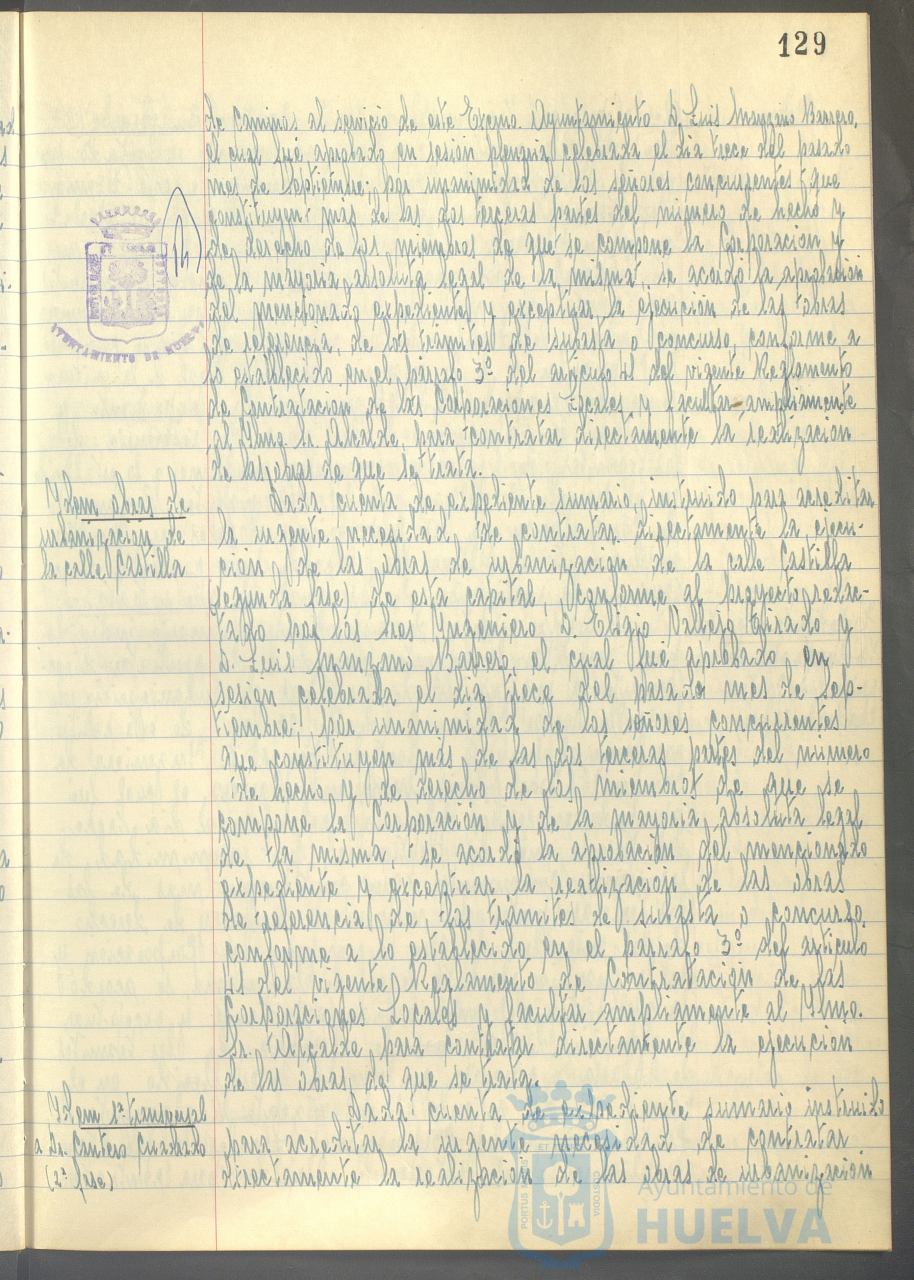 129
de Caminos al servicio de este Excmo. Ayuntamiento D. Luis Manzano Barrero,
el cual fué aprobado en sesión plenaria celebrada el dia trece del pasado
mes de Septiembre; por unanimidad de los señores concurrentes que
constituyen más de las dos terceras partes del número de hecho y
de derecho de los miembros de que se compone la Corporación y
de la mayoria absoluta legal de la misma se acordó la aprobación
del mencionado expediente y exceptuar la ejecución de las obras
de referencia, de los trámites de subasta o concurso, conforme a
lo establecido en el párrafo 3º del articulo 41 del vigente Reglamento
de Contratación de las Corporaciones Locales y facultar ampliamente
al Ilmo Sr Alcalde, para contratar directamente la realización
de las obras de que se trata.
Idem obras de
urbanización de
la calle Castilla
Dada cuenta de expediente sumario, instruido para acreditar
la urgente necesidad de contratar directamente la ejecu-
ción de las obras de urbanización de la calle Castilla
(segunda fase) de esta capital, conforme al proyecto redac-
tado por los Sres Ingeniero D. Eligio Vallejo Tirado y
D. Luis Manzano Barrero, el cual fué aprobado en
sesión celebrada el dia trece del pasado mes de Sep-
tiembre; por unanimidad de los señores concurrentes
que constituyen más de las dos terceras partes del número
de hecho y de derecho de los miembros de que se
compone la Corporación y de la mayoria absoluta legal
de la misma, se acordó la aprobación del mencionado
expediente y exceptuar la realización de las obras
de referencia de los trámites de subasta o concurso,
conforme a lo establecido en el parrafo 3º del articulo
41 del vigente Reglamento de Contratación de las
Corporaciones Locales y facultar ampliamente al Ilmo.
Sr. Alcalde para contratar directamente la ejecución
de las obras de que se trata.
Idem 1ª transversal
a Dr. Cantero Cuadrado
(2ª fase)
Dada cuenta de expediente sumario instruido
para acreditar la urgente necesidad de contratar
directamente la realización de las obras de urbanización
AYUNTAMIENTO DE HUELVA
Ayuntamiento de
HUELVA